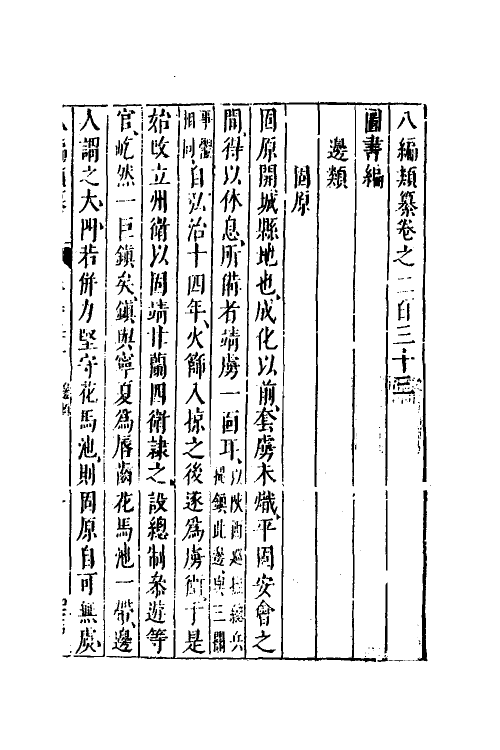 八編類纂卷之二百三十三
圖書編
邊類
固原
固原開城縣地也成化以前套虜未熾平固安會之
間得以休息所備者靖虜一面耳以陝西巡撫總兵
提鎮此邊與三關
事體
相同自弘治十四年火篩入掠之後遂為虜衝于是
始改立州衛以固靖甘蘭四衛隷之設總制叅遊等
官屹然一巨鎮矣鎮與寧夏為唇齒花馬池一帶邊
人謂之大門若併力堅守花馬池則固原自可無虞